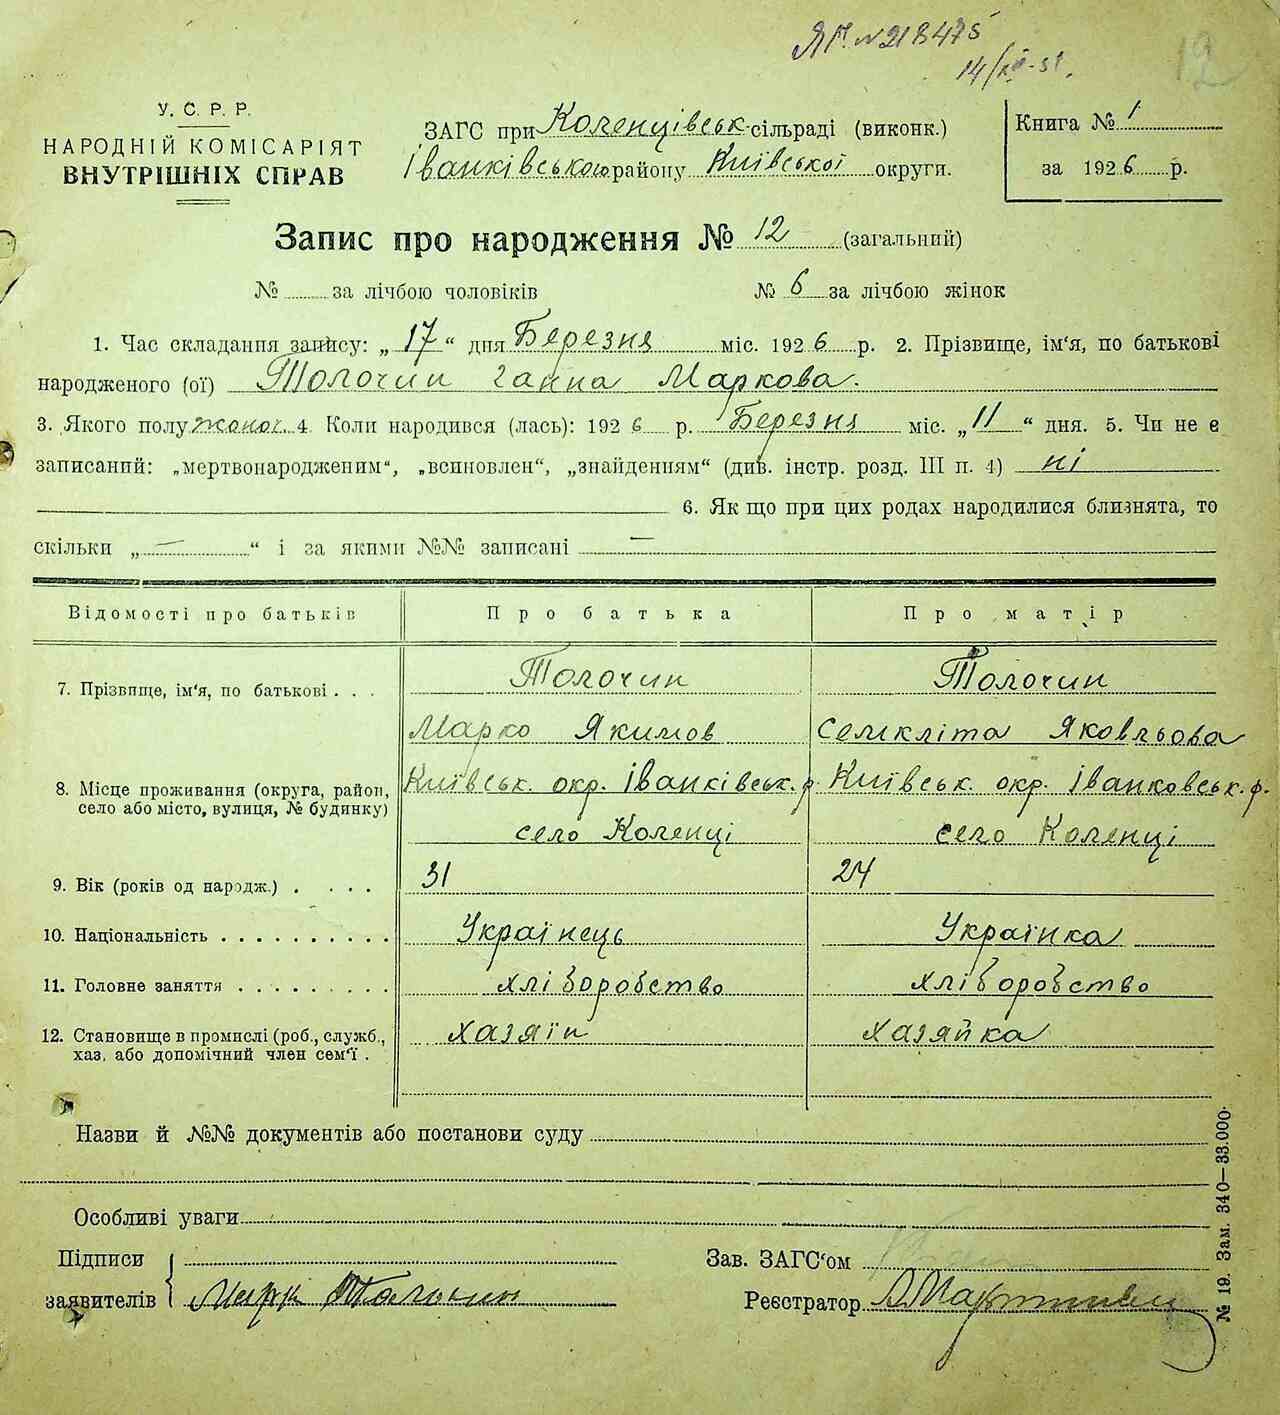 ЯП. №218475
14/XII-51.
12
У. С. Р. Р.
НАРОДНІЙ КОМІСАРІЯТ
ВНУТРІШНІХ СПРАВ
ЗАГС при Коленцівськ сільраді (виконк.)
Іванківського району Київської округи.
Книга № 1
за 1926 р.
Запис про народження № 12 (загальний)
№ за лічбою чоловіків № 6 за лічбою жінок
1. Час складання запису: „17“ дня Березня міс. 1926 р. 2. Прізвище, ім'я, по батькові
народженого (ої) Толочин Ганна Маркова.
3. Якого полу жоноч. 4. Коли народився (лась): 1926 р. Березня міс. „11“ дня. 5. Чи не є
записаний: „мертвонародженим“, „всиновлен“, „знайденням“ (див. інстр. розд. III п. 4) ні
6. Як що при цих родах народилися близнята, то
скільки „—“ і за якими №№ записані —
Відомості про батьків Про батька Про матір
7. Прізвище, ім'я, по батькові . . . Толочин Толочин
Марко Якимов Семкліта Яковльова
8. Місце проживання (округа, район, село або місто, вулиця, № будинку) Київськ. окр. Іванківськ. р. Київськ. окр. Іванковськ. р.
село Коленці село Коленці
9. Вік (років од народж.) . . . . 31 24
10. Національність . . . . . . . . . . Українець Українка
11. Головне заняття . . . . . . . . . хліборобство хліборобство
12. Становище в промислі (роб., служб., хазяїн хазяйка
хаз. або допомічний член сем'ї .
Назви й №№ документів або постанови суду
Особливі уваги
Підписи Зав. ЗАГС'ом
заявителів Марк Толочин Реєстратор
№ 19. Зам. 340—33.000.